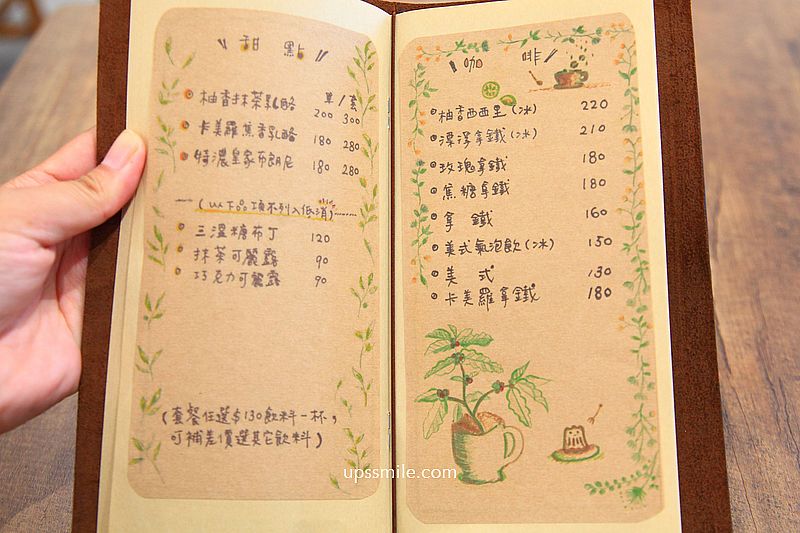 甜 點
單/套
柚香抹茶乳酪 200 300
卡美羅蕉香乳酪 180 280
特濃皇家布朗尼 180 280
(以下品項不列入低消)
三溫糖布丁 120
抹茶可麗露 90
巧克力可麗露 90
(套餐任選$130飲料一杯,
可補差價選其它飲料)
咖 啡
柚香西西里(冰) 220
漂浮拿鐵(冰) 210
玫瑰拿鐵 180
焦糖拿鐵 180
拿 鐵 160
美式氣泡飲(冰) 150
美 式 130
卡美羅拿鐵 180
upssmile.com